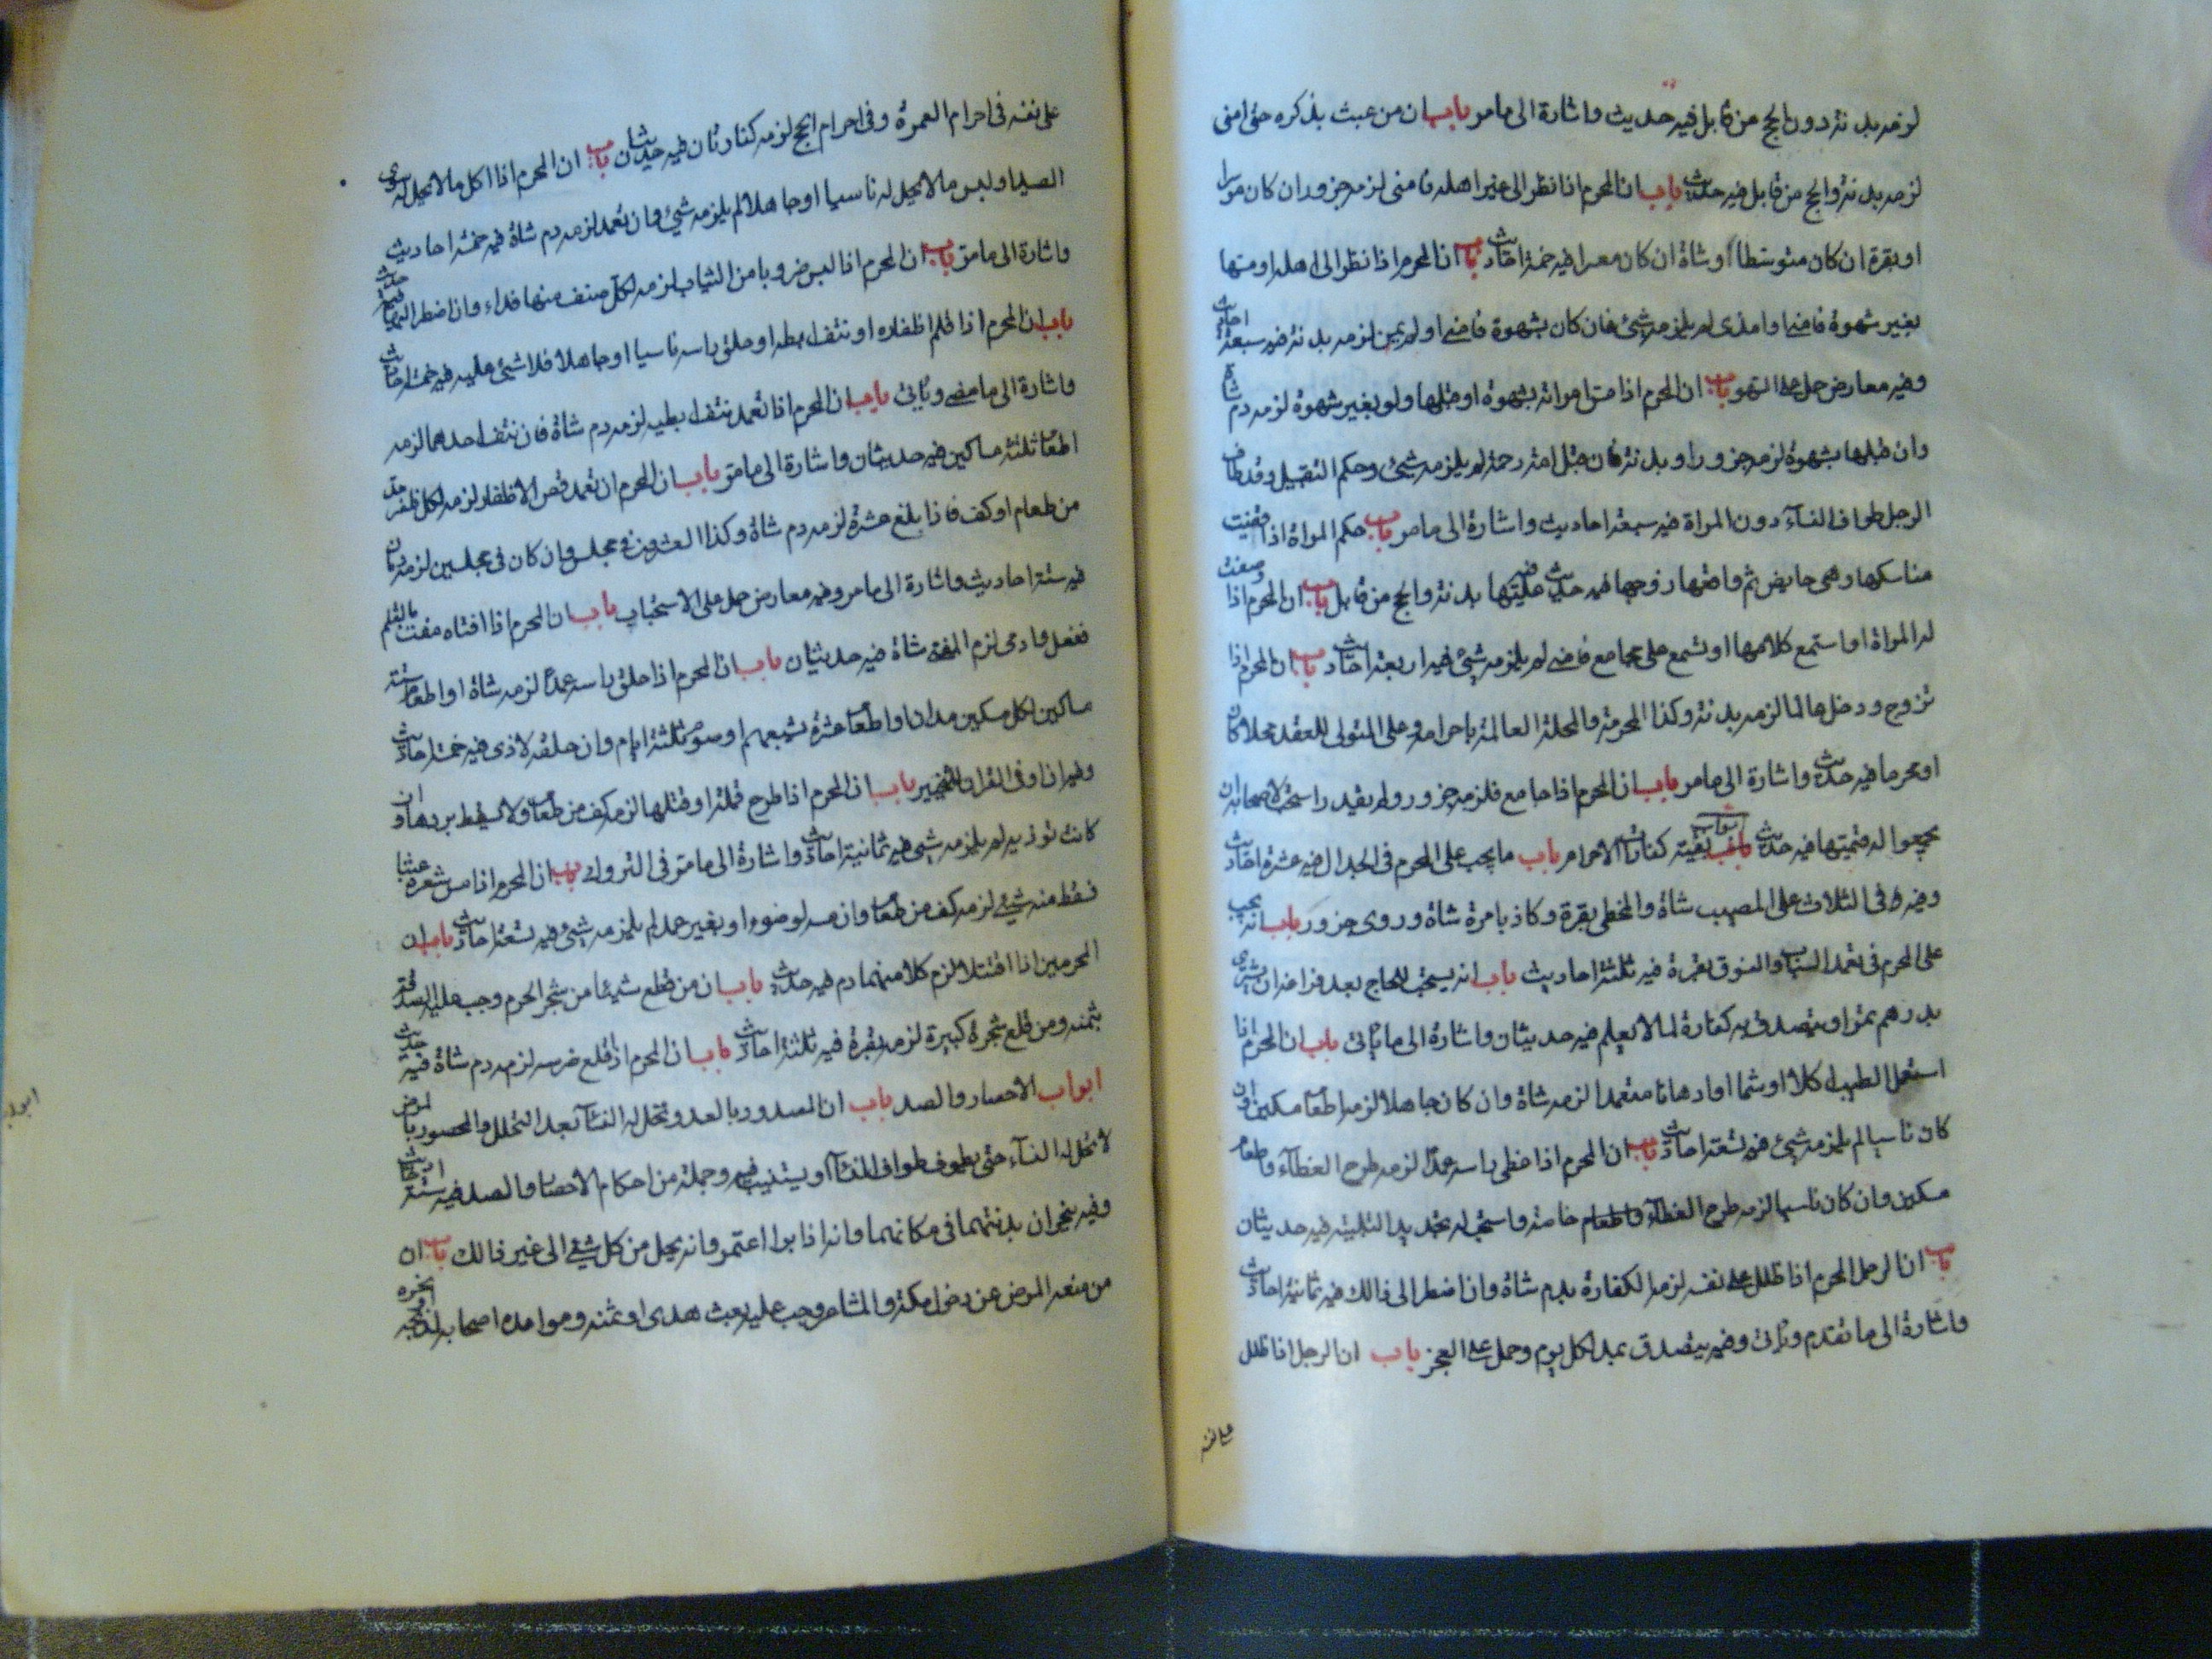 لزمه بدنة دون الحج من قابل فيه حديث واشارة الى ما مر باب ان من عبث بذكره حتى امنى
لزمه بدنة والحج من قابل فيه حديث باب ان المحرم اذا نظر الى غير اهله فامنى لزمه جزور ان كان موسرا
او بقرة ان كان متوسطا او شاة ان كان معسرا فيه خمسة احاديث باب ان المحرم اذا نظر الى اهله او مسها
بغير شهوة فامنى او امذى لم يلزمه شئ فان كان بشهوة فامنى او لم يمن لزمه بدنة فيه سبعة احاديث
وفيه معارض حمل على السهو باب ان المحرم اذا مس امراته بشهوة او قبلها ولو بغير شهوة لزمه دم شاة
وان قبلها بشهوة لزمه جزور او بدنة فان قبل امه رحمة لم يلزمه شئ وحكم التقبيل وقد طاف
الرجل طواف النساء دون المراة فيه سبعة احاديث واشارة الى ما مر باب حكم المراة اذا قضيت
مناسكها وهى حايض ثم واقعها زوجها فيه حديث عليها بدنة والحج من قابل باب ان المحرم اذا وصفت
له المراة او استمع كلامها او تسمع على مجامع فامنى لم يلزمه شئ فيه اربعة احاديث باب ان المحرم اذا
تزوج ودخل عالما لزمه بدنة وكذا المحرمة والمحلة العالمة باحرامه وعلى المتولى للعقد محلا كان
او محرما فيه حديث واشارة الى ما مر باب ان المحرم اذا جامع فلزمه جزور ولم يقدر استحب لاصحابه ان
يجمعوا له قيمتها فيه حديث ابواب بقية كفارات الاحرام باب ما يجب على المحرم فى الجدال فيه عشرة احاديث
وفيه فى الثلاث على المصيب شاة والمخطى بقرة وكاذبا مرة شاة وروى جزور باب انه يجب
على المحرم فى تعمد السباب والفسوق بقرة فيه ثلثة احاديث باب انه يستحب للحاج بعد فراغه ان يشترى
بدرهم تمرا ويتصدق به كفارة لما لا يعلم فيه حديثان واشارة الى ما ياتى باب ان المحرم اذا
استعمل الطيب اكلا او شما او ادهانا متعمدا لزمه شاة وان كان جاهلا لزمه اطعام مسكين وان
كان ناسيا لم يلزمه شئ فيه تسعة احاديث باب ان المحرم اذا غطى راسه عمدا لزمه طرح الغطاء واطعام
مسكين وان كان ناسيا لزمه طرح الغطاء واطعام خاصة واستحب له تجديد التلبية فيه حديثان
باب ان الرجل المحرم اذا ظلل على نفسه لزمه الكفارة بدم شاة وان اضطر الى ذالك فيه ثمانية احاديث
واشارة الى ما تقدم وياتى وفيه يتصدق بمد لكل يوم وحمل على العجز باب ان الرجل اذا ظلل
على نفسه
على نفسه فى احرام العمرة وفى احرام الحج لزمه كفارتان فيه حديثان باب ان المحرم اذا اكل ما لا يحل له سوى
الصيد او لبس ما لا يحل له ناسيا او جاهلا لم يلزمه شئ وان تعمد لزمه دم شاة فيه خمسة احاديث
واشارة الى ما مر باب ان المحرم اذا لبس ضروبا من الثياب لزمه لكل صنف منها فداء وان اضطر اليها فيه حديث
باب ان المحرم اذا قلم اظفاره او نتف ابطه او حلق راسه ناسيا او جاهلا فلا شئ عليه فيه خمسة احاديث
واشارة الى ما مضى وياتى باب ان المحرم اذا تعمد نتف ابطيه لزمه دم شاة فان نتف احدهما لزمه
اطعام ثلثة مساكين فيه حديثان واشارة الى ما مر باب ان المحرم ان تعمد قص الاظفار لزمه لكل ظفر مد
من طعام او كف فاذا بلغ عشرة لزمه دم شاة وكذا العشرون فى مجلس وان كان فى مجلسين لزمه دمان
فيه ستة احاديث واشارة الى ما مر وفيه معارض حمل على الاستحباب باب ان المحرم اذا افتاه مفت بالقلم
ففعل فادمى لزم المفتى شاة فيه حديثان باب ان المحرم اذا حلق راسه عمدا لزمه شاة او اطعام ستة
مساكين لكل مسكين مدان او اطعام عشرة يشبعهم او صوم ثلثة ايام وان حلقه لاذى فيه خمسة احاديث
وفيه ان او فى القران للتخيير باب ان المحرم اذا طرح قملة او قتلها لزمه كف من طعام ولا يسقط بردها وان
كانت توذيه لم يلزمه شئ فيه ثمانية احاديث واشارة الى ما مر فى التروك باب ان المحرم اذا مس شعره عبثا
فسقط منه شئ لزمه كف من طعام وان مسه لوضوء او بغير عمد لم يلزمه شئ وفيه تسعة احاديث باب ان
المحرمين اذا اقتتلا لزم كلا منهما دم فيه حديث باب ان من قطع شيئا من شجر الحرم وجب عليه الصدقة
بثمنه ومن قلع شجرة كبيرة لزمه بقرة فيه ثلثة احاديث باب ان المحرم اذا قلع ضرسه لزمه دم شاة فيه حديث
ابواب الاحصار والصد باب ان المصدود بالعدو تحل له النساء بعد التحلل والمحصور بالمرض
لا تحل له النساء حتى يطوف طواف النساء او يستنيب فيه وجملة من احكام الاحصار والصد فيه ستة احاديث
وفيه ينحران بدنتهما فى مكانهما وانه اذا برا اعتمر وانه يحل من كل شئ الى غير ذالك باب ان
من منعه المرض عن دخول مكة والمشاعر وجب عليه بعث هدى او ثمنه ومواعدة اصحابه لذبحه او نحره